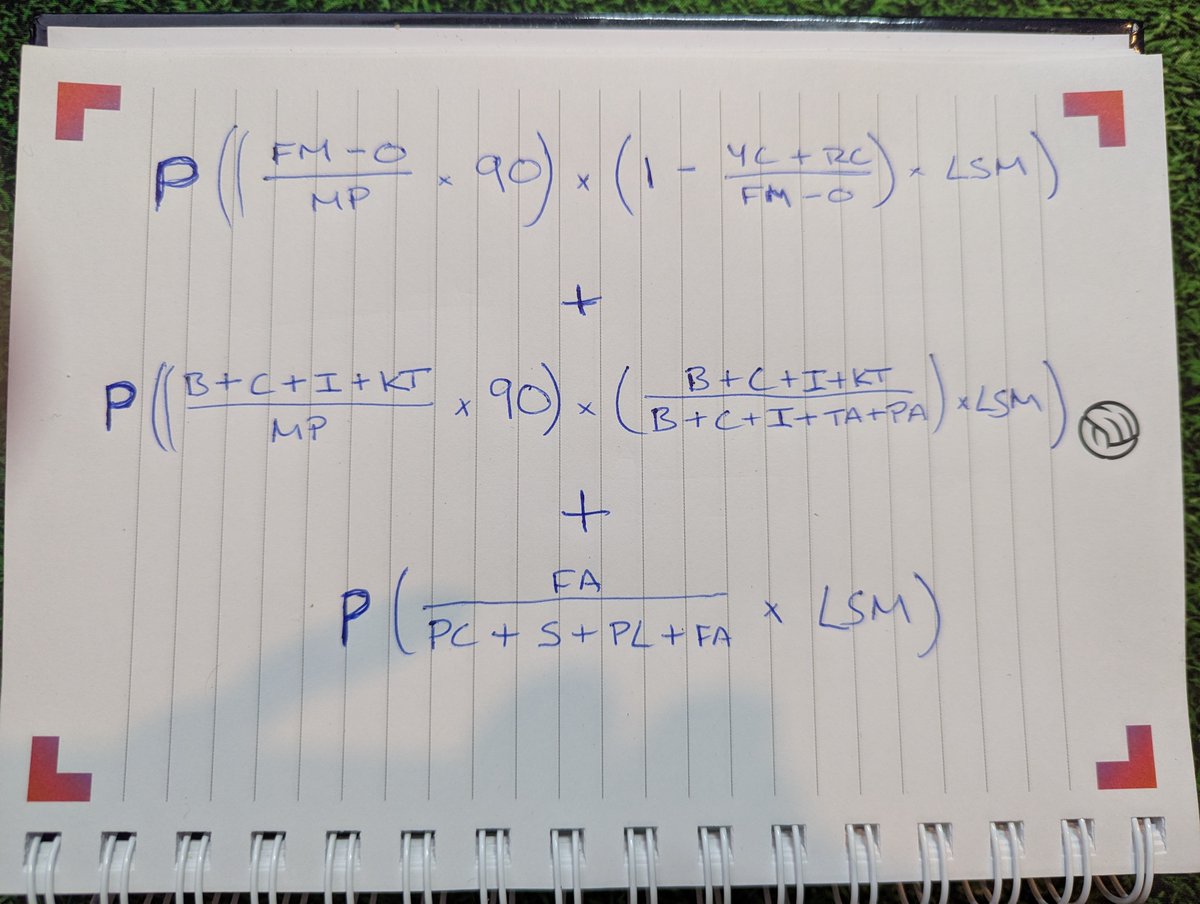 P((FM-O/MP × 90) × (1 - YC+RC/FM-O) × LSM)
+
P((B+C+I+KT/MP × 90) × (B+C+I+KT/B+C+I+TA+PA) × LSM)
+
P(FA/PC+S+PL+FA × LSM)